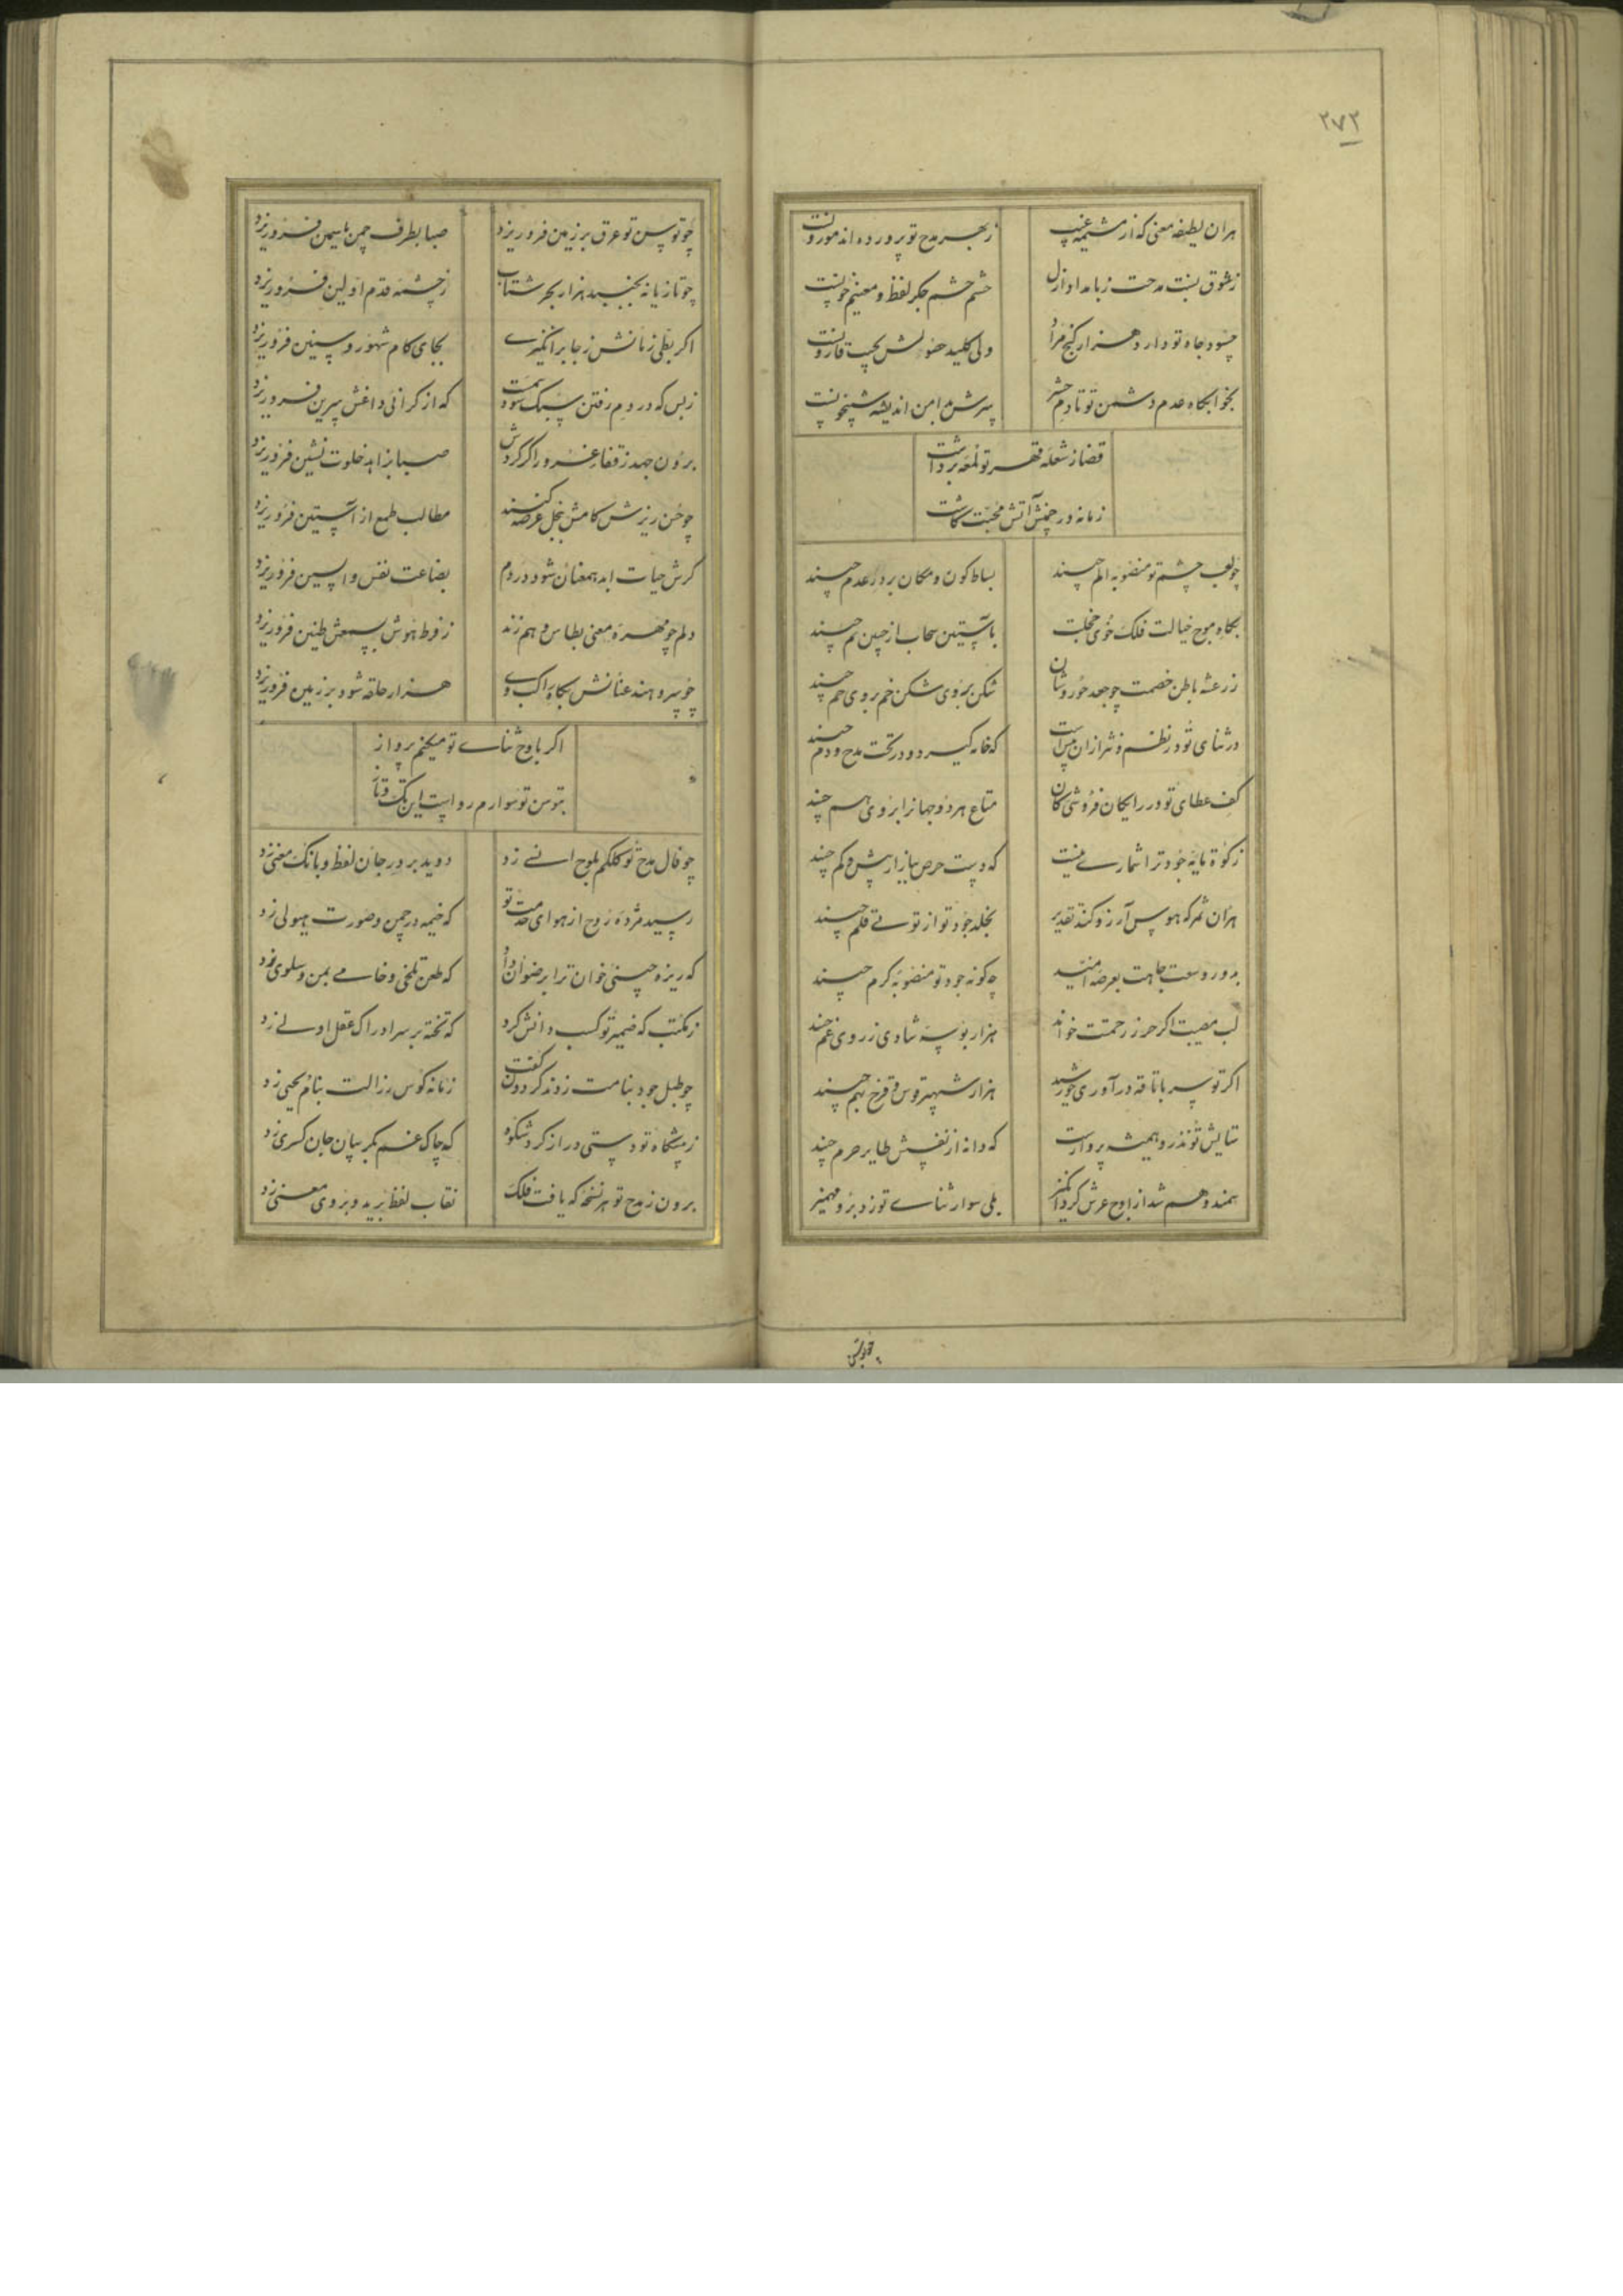 ۲۷۲
هران لطیفه معنی که از مشیمه غیب زبهر مدح تو پرورده اند موزونست
زشوق نسبت مدحت زبامداد ازل خشم جگر لفظ و معنیم خونست
حسود جاه تو دارد هزار گنج مراد ولی کلید حصولش بجیب قارونست
بخوابگاه عدم دشمن تو تا دم حشر سرش بدامن اندیشه شبیخونست
قضا ز شعله قهر تو لمعه برداشت
زمانه در چمنش آتش محبت کاشت
چو لعب چشم تو منصوبه الم چیند بساط کون و مکان بر در عدم چیند
بگاه موج خیالت فلک خوی خجلت بآستین سحاب از جبین یم چیند
ز رعشه باطن خصمت چو جعد حوروشان شکن بروی شکن خم بروی خم چیند
در ثنای تو در نظم و نثر ازان که خانه گیرد و در تخت مدح و ذم چیند
کف عطای تو در رایکان فروشی کان متاع هر دو جهانرا بروی هم چیند
زکوة مایه جود ترا شماری نیست که دست حرص ببازار بیش و کم چیند
هران ثمر که هوس آرزو کند تقدیر بخلد جود تو از توتی قلم چیند
بدور وسعت جاهت بعرصه امید چه گونه جود تو منصوبه کرم چیند
لب مصیبت اگر حرز رحمتت خواند هزار بوسه شادی ز روی غم چیند
اگر تو سر باناقه در آوری خورشید هزار شهپر قوس قزح بهم چیند
ستایش تو تذرو همیشه پروازست که دانه از نفسش طایر حرم چیند
سمند وهم شد از اوج عرش گردانگیز بلی سوار ثنای تو زد برو مهمیز
چو توسن تو عرق بر زمین فرو ریزد صبا بطرف چمن یاسمین فرو ریزد
چو تازیانه بجنبد هزار بحر شتاب ز چشمه قدم اولین فرو ریزد
اگر بطی زمانش ز جا برانگیزی بجای کام شهور و سنین فرو ریزد
ز بس که در دم رفتن سبک شود سمت که از گرانی داغش سرین فرو ریزد
برون جهد ز قفا غرور اگر گردش صبا بزاهد خلوت نشین فرو ریزد
چو حسن ریزش کامش بخل عرضه کنند مطالب طمع از آستین فرو ریزد
گرش حیات ابد همعنان شود در دم بضاعت نفس واپسین فرو ریزد
دلم چو مهره معنی بطاس وهم زند ز فرط هوش بسمعش طنین فرو ریزد
چو سر دهند عنانش بگاه هزار حلقه شود بر زمین فرو ریزد
اگر باوج ثنای تو میکنم پرواز
بتوسن تو سوارم رواست این تک و تاز
چو فال مدح تو کلکم بلوح انشی زد دوید بر در جان لفظ و بانگ معنی زد
رسید مژده روح از هوای خدمت تو که خیمه در چمن و صورت هیولی زد
که ریزه چینی خوان ترا برضوان داد که طعن تلخی و خامی بمن و سلوی زد
ز مکتب که ضمیر تو کسب دانش کرد که تخته بر سر ادراک عقل اولی زد
چو طبل جود بنامت زدند گردون گفت زمانه کوس رزالت بنام یحیی زد
ز پیشگاه تو دستی دراز کرد شکوه که چاک غم بگریبان جان کسری زد
برون ز مدح تو هر نسخه که یافت فلک نقاب لفظ برید و بروی معنی زد
چو توسن